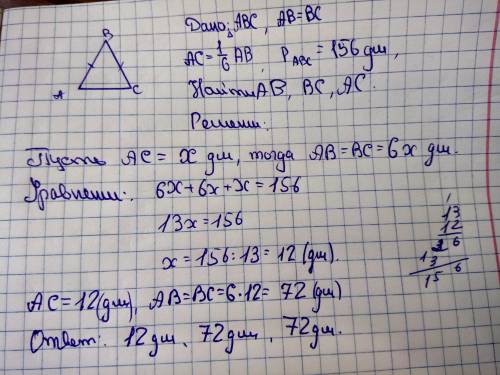 Дано: △ABC, AB=BC
AC=1/6 AB, P ABC = 156 дм,
Найти AB, BC, AC.
Решени:
B
A
C
Пусть AC = x дм, тогда AB=BC=6x дм.
Уравнени: 6x+6x+x=156
13x=156
x=156:13=12 (дм).
1
13
12
26
13
156
AC=12(дм), AB=BC=6·12=72(дм)
Ответ: 12дм, 72дм, 72дм.